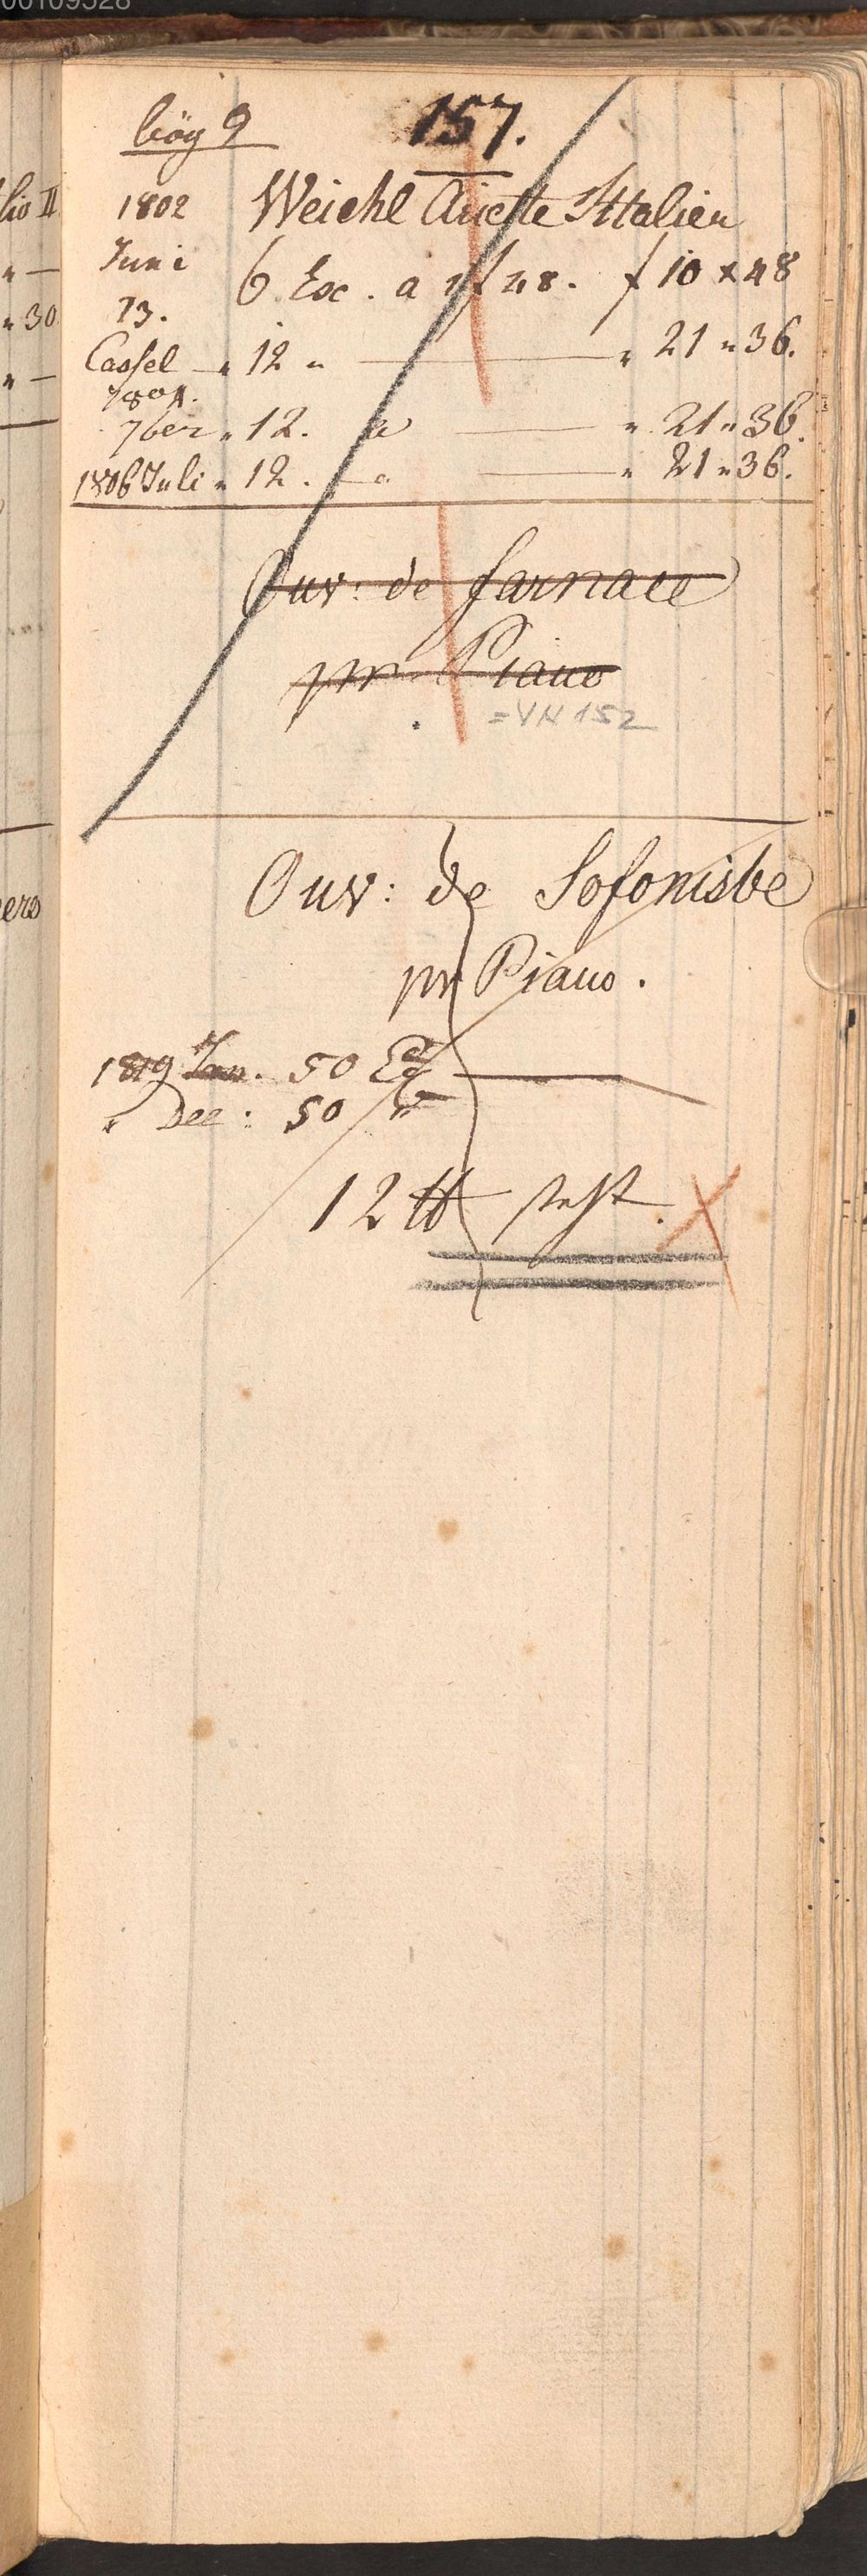 00109528
bög 9 157.
1802 Weichl Ariette Ittalien
Juni 6 Ex. a 1f 48. f 10 x 48
13.
Cassel " 12 " — " 21 " 36.
1804.
7ber " 12. a — " 21 " 36.
1806 Juli " 12. — a — " 21 " 36.
Ouv: de farnace
pr Piano
=VN 152
Ouv: de Sofonisbe
pr Piano.
1819 Jan. 50 Ex —
" Dec: 50 "
12 tt steht.
lio II
" —
" 30
" —
ers